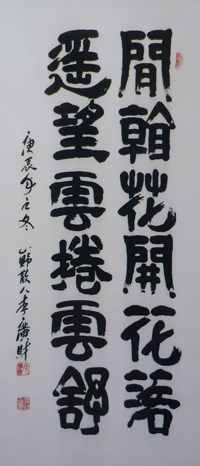 閒看花開花落
遥望雲捲雲舒
庚辰年之冬 山野散人李廣財